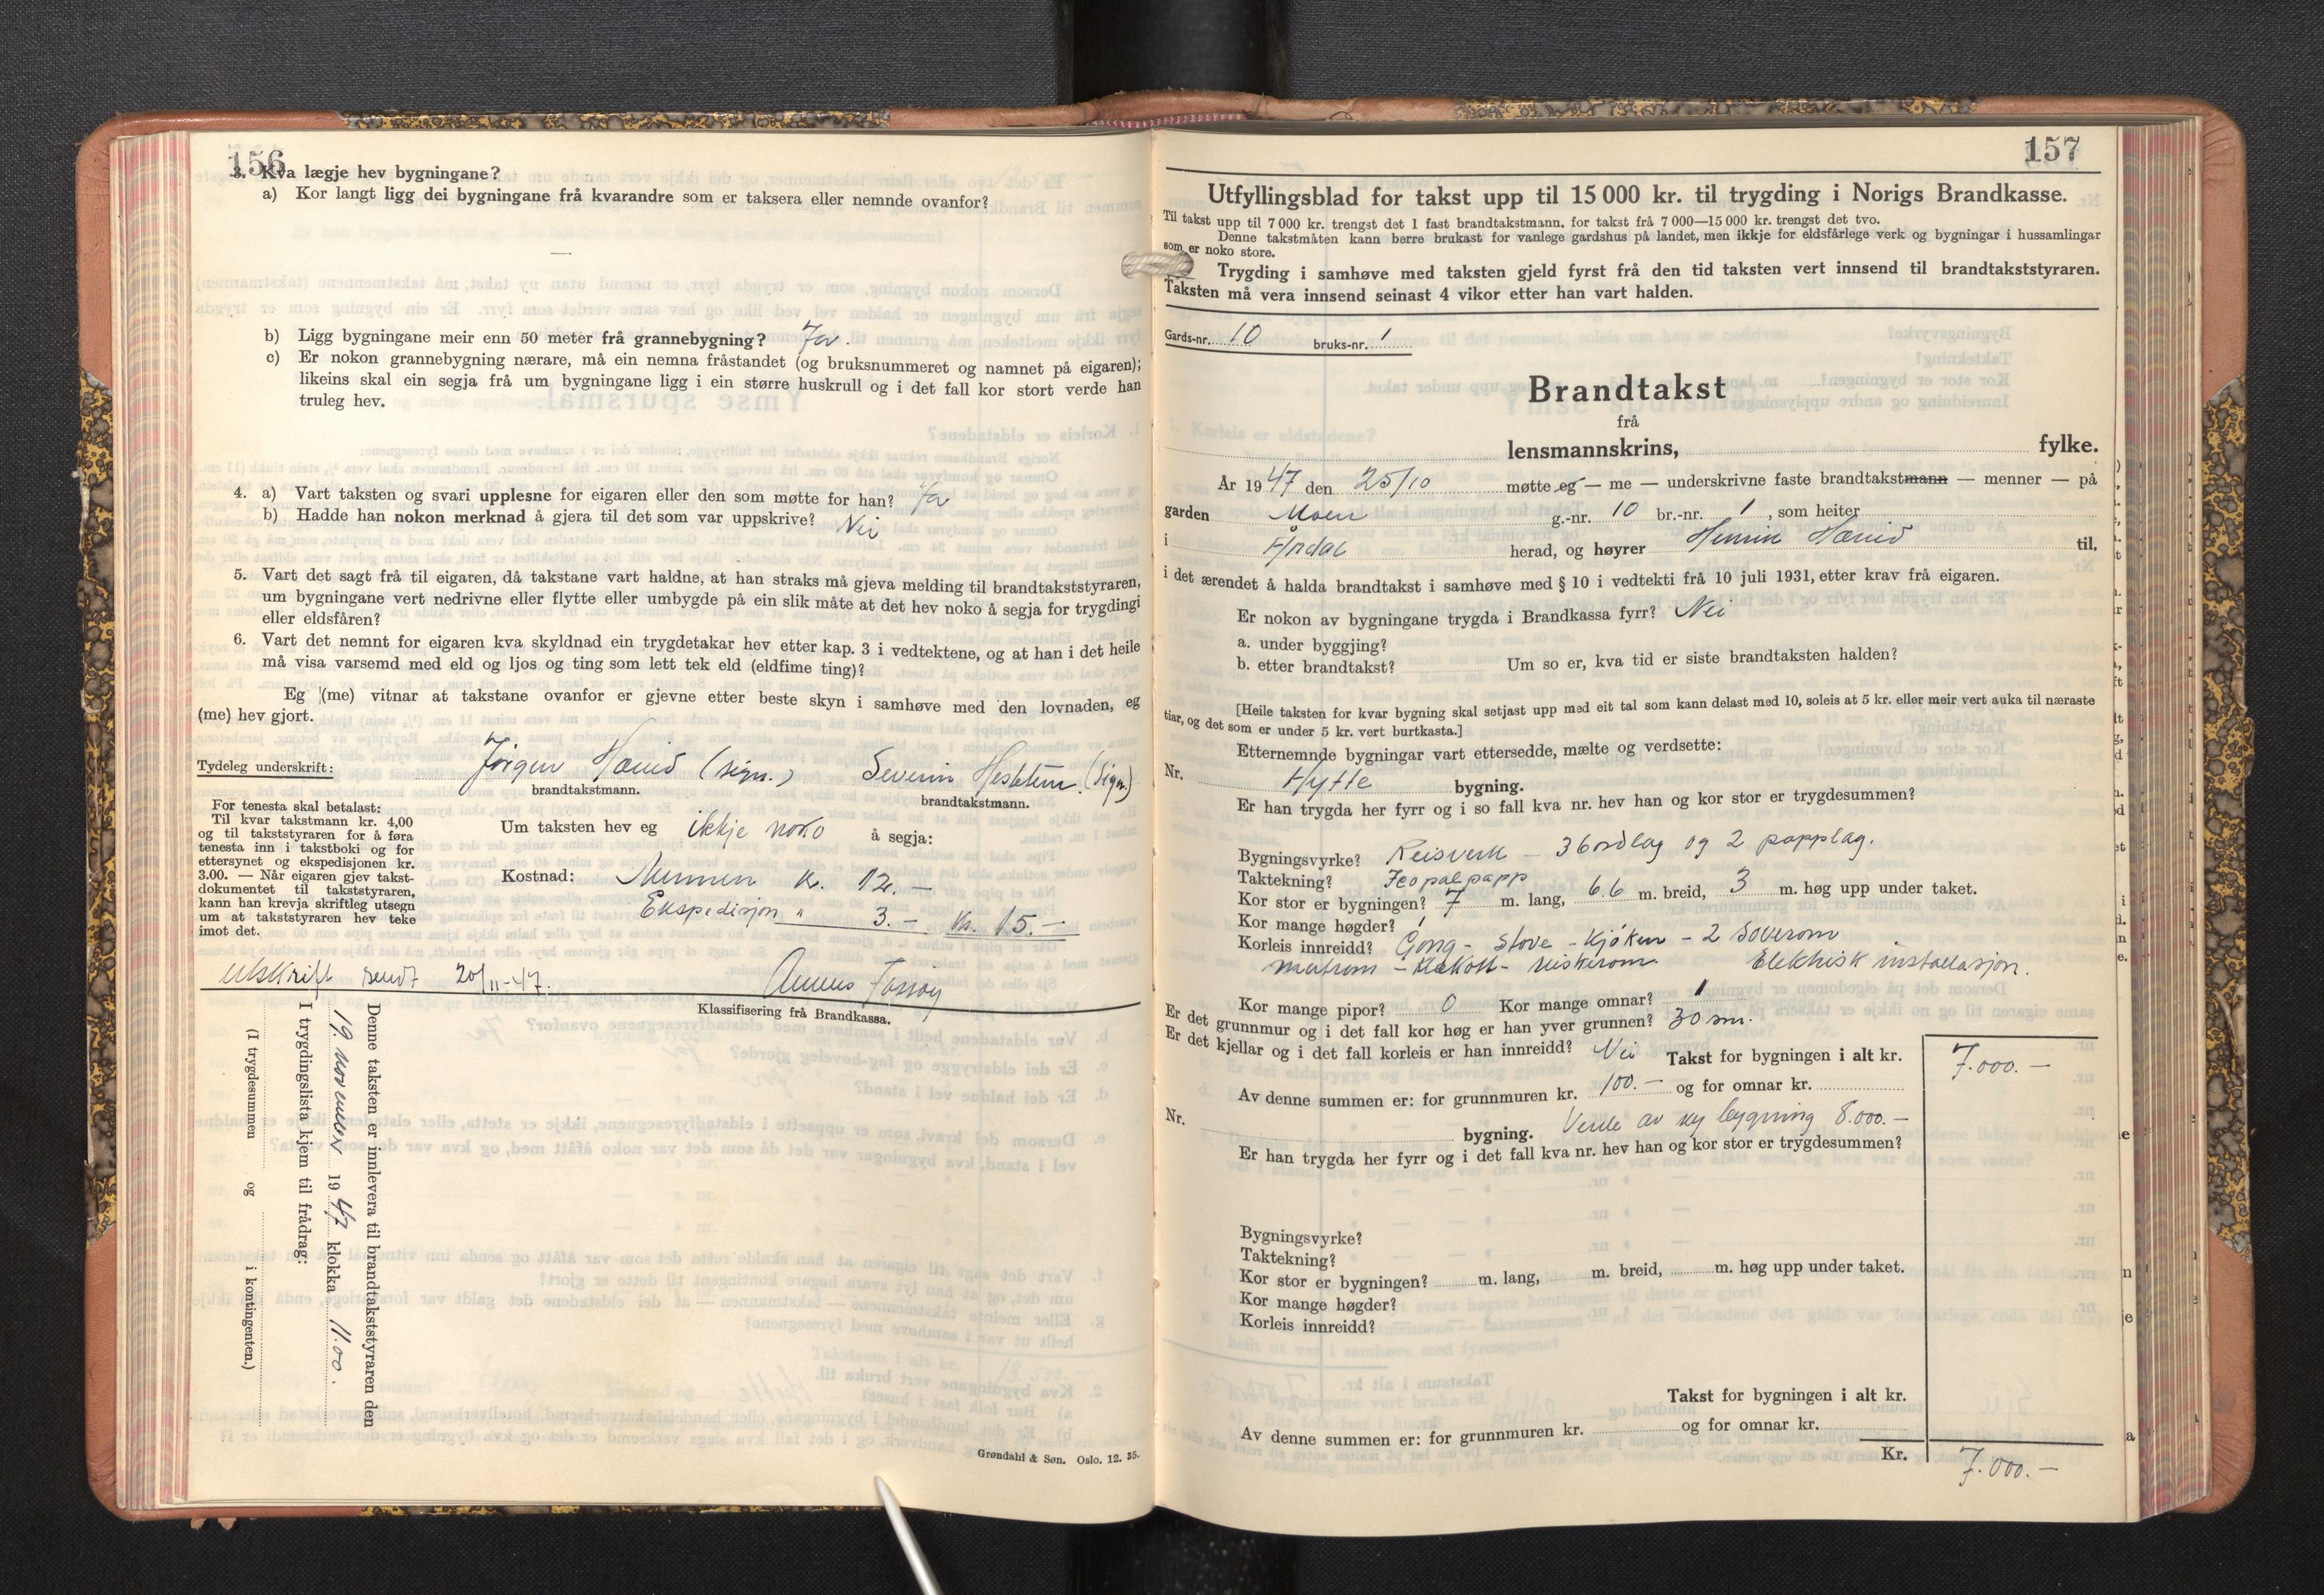 156
3. Kva lægje hev bygningane?
a) Kor langt ligg dei bygningane frå kvarandre som er taksera eller nemnde ovanfor?
—
b) Ligg bygningane meir enn 50 meter frå grannebygning? Ja.
c) Er nokon grannebygning nærare, må ein nemna fråstandet (og bruksnummeret og namnet på eigaren);
likeins skal ein segja frå um bygningane ligg i ein større huskrull og i det fall kor stort verde han
truleg hev.
4. a) Vart taksten og svari upplesne for eigaren eller den som møtte for han? Ja
b) Hadde han nokon merknad å gjera til det som var uppskrive? Nei
5. Vart det sagt frå til eigaren, då takstane vart haldne, at han straks må gjeva melding til brandtakststyraren,
um bygningane vert nedrivne eller flytte eller umbygde på ein slik måte at det hev noko å segja for trygdingi
eller eldsfåren?
6. Vart det nemnt for eigaren kva skyldnad ein trygdetakar hev etter kap. 3 i vedtektene, og at han i det heile
må visa varsemd med eld og ljos og ting som lett tek eld (eldfime ting)?
Eg (me) vitnar at takstane ovanfor er gjevne etter beste skyn i samhøve med den lovnaden, eg
(me) hev gjort.
Tydeleg underskrift: Jörgen Hænid (sign.) Severin Hestetun (sign.)
brandtakstmann. brandtakstmann.
For tenesta skal betalast:
Til kvar takstmann kr. 4,00
og til takststyraren for å føra
tenesta inn i takstboki og for
ettersynet og ekspedisjonen kr.
3.00. — Når eigaren gjev takst-
dokumentet til takststyraren,
kann han krevja skriftleg utsegn
um at takststyraren hev teke
imot det.
Um taksten hev eg ikkje noko å segja:
Kostnad: Mennen kr. 12.—
Ekspedisjon " 3.— Kr. 15.—
Utskrift sendt 20/11-47.
Klassifisering frå Brandkassa.
Denne taksten er innlevera til brandtakststyraren den
19. november 1947 klokka 11.00.
I trygdingslista kjem til frådrag:
(I trygdesummen og i kontingenten.)
Grøndahl & Søn. Oslo. 12. 35.
157
Utfyllingsblad for takst upp til 15 000 kr. til trygding i Norigs Brandkasse.
Til takst upp til 7 000 kr. trengst det 1 fast brandtakstmann, for takst frå 7 000—15 000 kr. trengst det tvo.
Denne takstmåten kann berre brukast for vanlege gardshus på landet, men ikkje for eldsfårlege verk og bygningar i hussamlingar
som er noko store.
Trygding i samhøve med taksten gjeld fyrst frå den tid taksten vert innsend til brandtakststyraren.
Taksten må vera innsend seinast 4 vikor etter han vart halden.
Gards-nr. 10 bruks-nr. 1
Brandtakst
frå
lensmannskrins, fylke.
År 1947 den 25/10 møtte eg — me — underskrivne faste brandtakstmann — menner — på
garden Moen g.-nr. 10 br.-nr. 1, som heiter
i Årdal herad, og høyrer Henrin Hænid til,
i det ærendet å halda brandtakst i samhøve med § 10 i vedtekti frå 10 juli 1931, etter krav frå eigaren.
Er nokon av bygningane trygda i Brandkassa fyrr? Nei
a. under byggjing?
b. etter brandtakst? Um so er, kva tid er siste brandtaksten halden?
[Heile taksten for kvar bygning skal setjast upp med eit tal som kann delast med 10, soleis at 5 kr. eller meir vert auka til næraste
tiar, og det som er under 5 kr. vert burtkasta.]
Etternemnde bygningar vart ettersedde, mælte og verdsette:
Nr. Hytte bygning.
Er han trygda her fyrr og i so fall kva nr. hev han og kor stor er trygdesummen?
Bygningsvyrke? Reisverk — 3 bordlag og 2 papplag.
Taktekning? Icopalpapp
Kor stor er bygningen? 7 m. lang, 6.6 m. breid, 3 m. høg upp under taket.
Kor mange høgder? 1
Korleis innreidd? Gong - stove - kjöken - 2 soverom
matrom - - Elektrisk installasjon.
Kor mange pipor? 0 Kor mange omnar? 1
Er det grunnmur og i det fall kor høg er han yver grunnen? 30 sm.
Er det kjellar og i det fall korleis er han innreidd? Nei Takst for bygningen i alt kr. 7.000.—
Av denne summen er: for grunnmuren kr. 100.— og for omnar kr.
Nr. bygning. Verde av ny bygning 8.000.—
Er han trygda her fyrr og i det fall kva nr. hev han og kor stor er trygdesummen?
Bygningsvyrke?
Taktekning?
Kor stor er bygningen? m. lang, m. breid, m. høg upp under taket.
Kor mange høgder?
Korleis innreidd?
Takst for bygningen i alt kr.
Av denne summen er: for grunnmuren kr. og for omnar kr.
Kr. 7.000.—